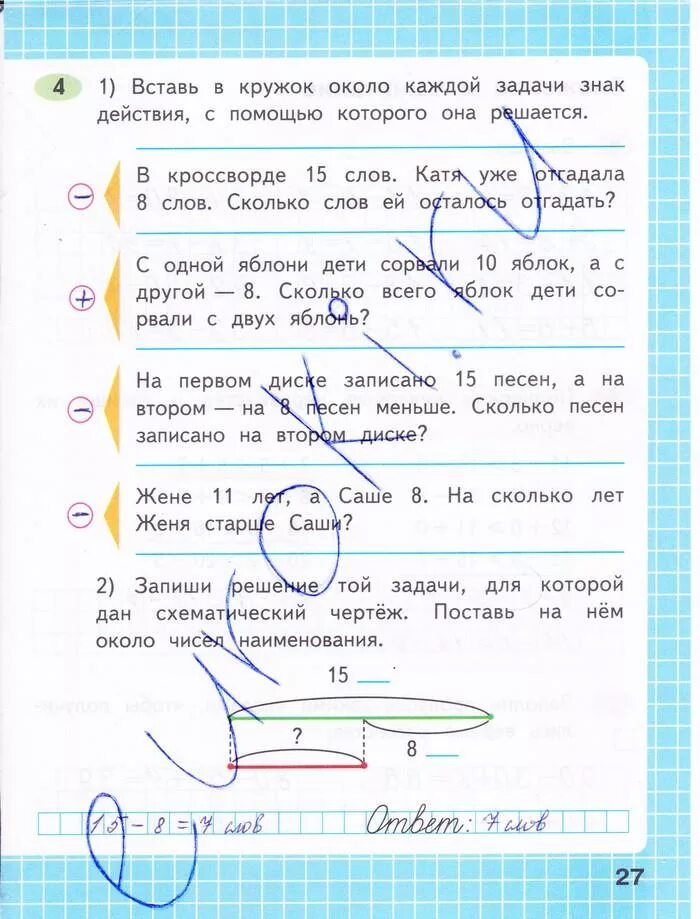 4 1) Вставь в кружок около каждой задачи знак
действия, с помощью которого она решается.
− В кроссворде 15 слов. Катя уже отгадала
8 слов. Сколько слов ей осталось отгадать?
С одной яблони дети сорвали 10 яблок, а с
+ другой — 8. Сколько всего яблок дети со-
рвали с двух яблонь?
На первом диске записано 15 песен, а на
− втором — на 8 песен меньше. Сколько песен
записано на втором диске?
− Жене 11 лет, а Саше 8. На сколько лет
Женя старше Саши?
2) Запиши решение той задачи, для которой
дан схематический чертёж. Поставь на нём
около чисел наименования.
15 ___
?
8 ___
15 − 8 = 7 слов Ответ: 7 слов
27